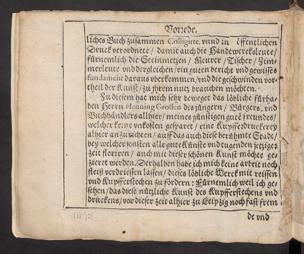 Vorrede.
liches Buch zusammen Colligirte, vnnd in öffentlichen
Druck verordnete / damit auch die Handwercksleute /
fürnemlich die Steinmetzen / Meurer / Tischer / Zim-
merleute vnd dergleichen / den guten bericht vnd gewisses
fundament daraus vberkommen / vnd die geschwinden vor-
theil der Kunst / zu jhrem nutz brauchen möchten.
Zu diesem hat mich sehr beweget das löbliche fürha-
ben Herrn Henning Grossen des jüngern / Bürgers / vnd
Buchhändlers allhier / meines günstigen guten Freundes /
welcher keine vnkosten gesparet / eine Kupfferdruckerey
alhier an zu richten / auff das auch diese berühmte Stadt /
bey welcher sonsten alle gute Künste vnd tugenden jetziger
zeit floriren / auch mit dieser schönen Kunst möchte ge-
zieret werden. Derhalben habe ich mich keine arbeit noch
fleiß verdriessen lassen / dieses löbliche Werck mit reissen
vnd Kupfferstechen zu fördern: Fürnemlich weil ich ge-
sehen / das diese nützliche Kunst des Kupfferstechens vnd
druckens / vor dieser zeit alhier zu Leipzig noch fast frem
de vnd